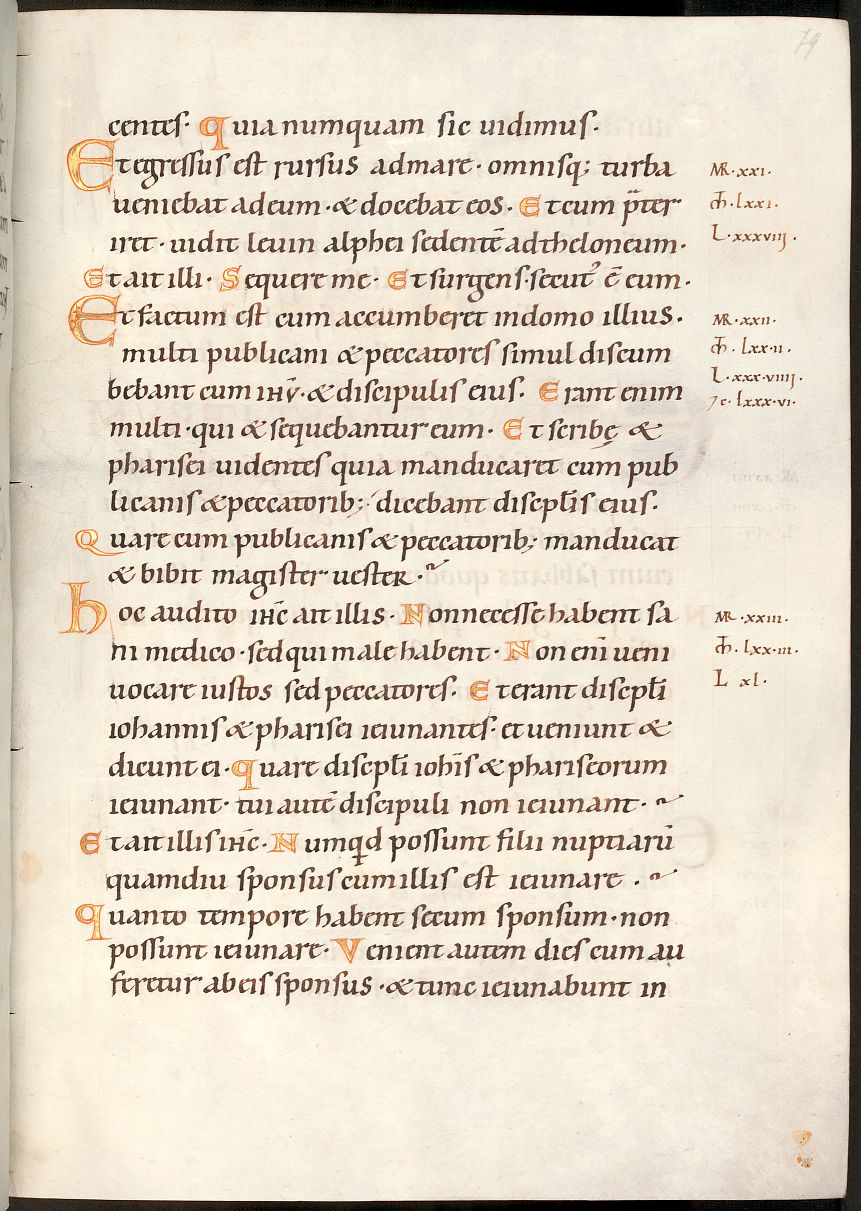 79
centes· Quia numquam sic uidimus·
Et egressus est rursus ad mare· omnisq; turba
ueniebat ad eum· & docebat eos· Et cum p̄ter
iret· uidit leuin alphei sedentē ad theloneum·
Et ait illi· Sequere me· Et surgens· secut᾿ ē eum·
Et factum est cum accumberet in domo illius·
multi publicani & peccatores simul discum
bebant cum ihū· & discipulis eius· Erant enim
multi· qui & sequebantur eum· Et scribę &
pharisei uidentes quia manducaret cum pub
licanis & peccatorib; dicebant discipl̄is eius·
Quare cum publicanis & peccatorib; manducat
& bibit magister uester·
hoc audito ihc̄ ait illis· Non necesse habent sa
ni medico· sed qui male habent· Non enī ueni
uocare iustos sed peccatores· Et erant discipl̄i
iohannis & pharisei ieiunantes· et ueniunt &
dicunt ei· Quare discipl̄i ioh̄is & phariseorum
ieiunant· tui autē discipuli non ieiunant·
Et ait illis ihc̄· Numqd possunt filii nuptiarū
quamdiu sponsus cum illis est ieiunare·
Quanto tempore habent secum sponsum· non
possunt ieiunare· Venient autem dies cum au
feretur ab eis sponsus· & tunc ieiunabunt in
MR· xxi·
M̄· lxxi·
L· xxxviii·
MR· xxii·
M̄· lxx·ii·
L· xxx·viiii·
lxxx·vi·
MR· xxiii·
M̄· lxx·iii·
L xl·